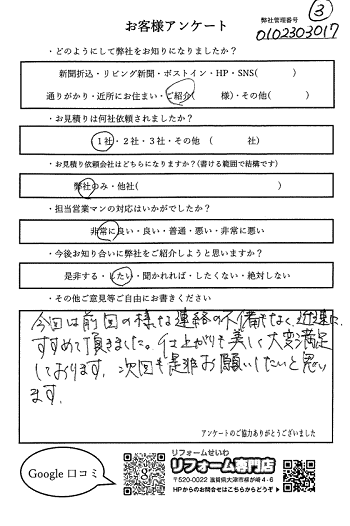 ③
お客様アンケート
弊社管理番号
0102303017
・どのようにして弊社をお知りになりましたか？
新聞折込・リビング新聞・ポストイン・HP・SNS(　　　)
通りがかり・近所にお住まい・ご紹介(　　　様)・その他(　　　)
・お見積りは何社依頼されましたか？
1社・2社・3社・その他　(　　　社)
・お見積り依頼会社はどちらになりますか？(書ける範囲で結構です)
弊社のみ・他社(　　　)
・担当営業マンの対応はいかがでしたか？
非常に良い・良い・普通・悪い・非常に悪い
・今後お知り合いに弊社をご紹介しようと思いますか？
是非する・したい・聞かれれば・したくない・絶対しない
・その他ご意見等ご自由にお書きください
今回は前回の様な連絡の不備もなく、迅速に
すすめて頂きました。仕上がりも美しく大変満足
しております。次回も是非お願いしたいと思い
ます。
アンケートのご協力ありがとうございました
Google 口コミ
g
リフォームせいわ
リフォーム専門店
〒520-0022 滋賀県大津市柳が崎4-6
HPからのお問合せはこちらからどうぞ▶